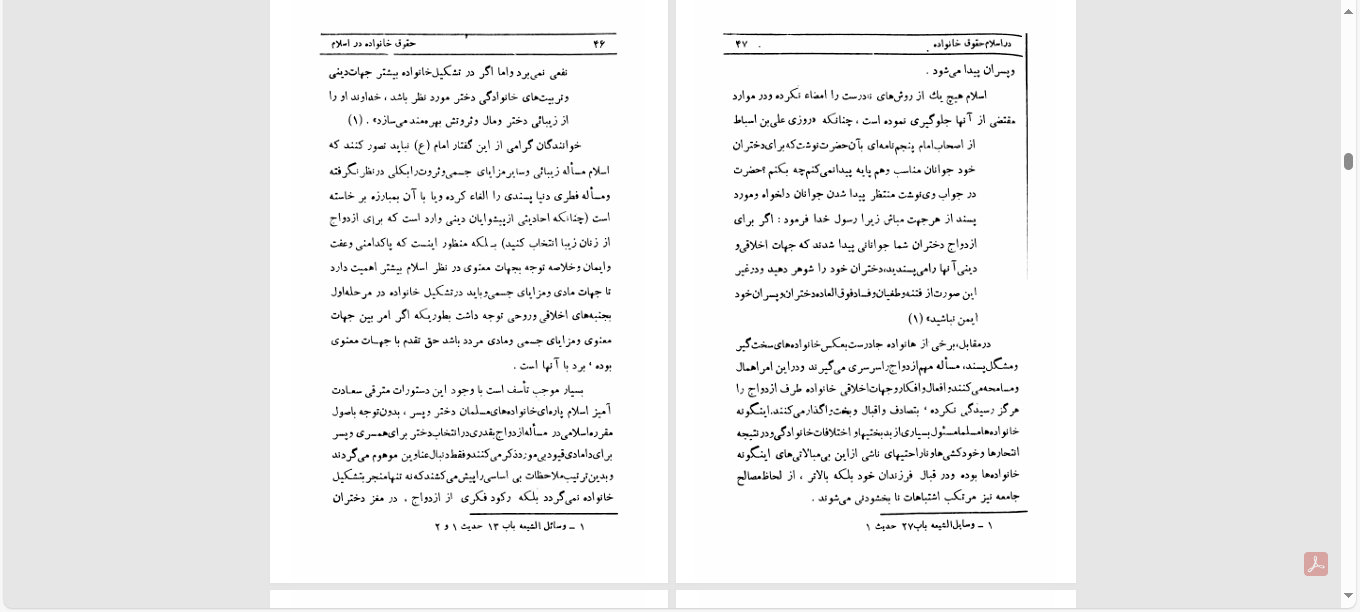 ۴۶ حقوق خانواده در اسلام
نفعی نمی‌برد واما اگر در تشکیل‌خانواده بیشتر جهات‌دینی
وتربیت‌های خانوادگی دختر مورد نظر باشد ، خداوند او را
از زیبائی دختر ومال وثروتش بهره‌مند می‌سازد» . (۱)
خوانندگان گرامی از این گفتار امام (ع) نباید تصور کنند که
اسلام مسأله زیبائی وسایر مزایای جسمی‌وثروت‌رابکلی درنظر نگرفته
ومسأله فطری دنیا پسندی را الغاء کرده ویا با آن بمبارزه بر خاسته
است (چنانکه احادیثی ازپیشوایان دینی وارد است که برای ازدواج
از زنان زیبا انتخاب کنید) بلکه منظور اینست که پاکدامنی وعفت
وایمان وخلاصه توجه بجهات معنوی در نظر اسلام بیشتر اهمیت دارد
تا جهات مادی ومزایای جسمی‌وباید درتشکیل خانواده در مرحله‌اول
بجنبه‌های اخلاقی وروحی توجه داشت بطوریکه اگر امر بین جهات
معنوی ومزایای جسمی ومادی مردد باشد حق تقدم با جهات معنوی
بوده ، برد با آنها است .
بسیار موجب تأسف است با وجود این دستورات مترقی سعادت
آمیز اسلام پاره‌ای‌خانواده‌های‌مسلمان دختر وپسر ، بدون‌توجه باصول
مقرره‌اسلامی‌در مسأله‌ازدواج‌بقدری‌درانتخاب‌دختر برای‌همسری وپسر
برای‌دامادی‌قیودبی‌موردذکرمی‌کنندوفقط‌دنبال‌عناوین موهوم می‌گردند
وبدین‌ترتیب‌ملاحظات بی اساسی‌راپیش‌می‌کشندکه‌نه تنهامنجربتشکیل
خانواده نمی‌گردد بلکه رکود فکری از ازدواج . در مغز دختران
۱ – وسائل الشیعه باب ۱۳ حدیث ۱ و ۲
دراسلام‌حقوق خانواده ۴۷
وپسران پیدا می‌شود .
اسلام هیچ یك از روش‌های نادرست را امضاء نکرده ودر موارد
مقتضی از آنها جلوگیری نموده است ، چنانکه «روزی علی‌بن اسباط
از اصحاب‌امام پنجم‌نامه‌ای بآن‌حضرت‌نوشت‌که برای‌دختران
خود جوانان مناسب وهم پایه پیدانمی‌کنم‌چه بکنم ؟حضرت
در جواب وی‌نوشت منتظر پیدا شدن جوانان دلخواه ومورد
پسند از هرجهت مباش زیرا رسول خدا فرمود : اگر برای
ازدواج دختران شما جوانانی پیدا شدند که جهات اخلاقی‌و
دینی‌آنها رامی‌پسندید،دختران خود را شوهر دهید ودرغیر
این صورت‌از فتنه‌وطغیان‌وفسادفوق‌العاده‌دختران‌وپسران‌خود
ایمن نباشید» (۱)
درمقابل،برخی از هانواده جادرست‌بعکس‌خانواده‌های‌سخت‌گیر
ومشگل‌پسند، مسأله مهم‌ازدواج‌راسرسری می‌گیرند ودراین امراهمال
ومسامحه‌می‌کنندوافعال‌وافکاروجهات‌اخلاقی خانواده طرف ازدواج را
هرگز رسیدگی نکرده ، بتصادف واقبال وبخت‌راگذارمی‌کنند.اینگونه
خانواده‌هامسلمامسئول‌بسیاری‌ازبدبختیهاو اختلافات‌خانوادگی‌ودرنتیجه
انتحارها وخودکشی‌هاوناراحتیهای ناشی ازاین بی‌مبالاتی‌های اینگونه
خانواده‌ها بوده ودر قبال فرزندان خود بلکه بالاتر ، از لحاظ‌مصالح
جامعه نیز مرتکب اشتباهات نا بخشودنی می‌شوند .
۱ – وسایل‌الشیعه باب۲۷ حدیث ۱